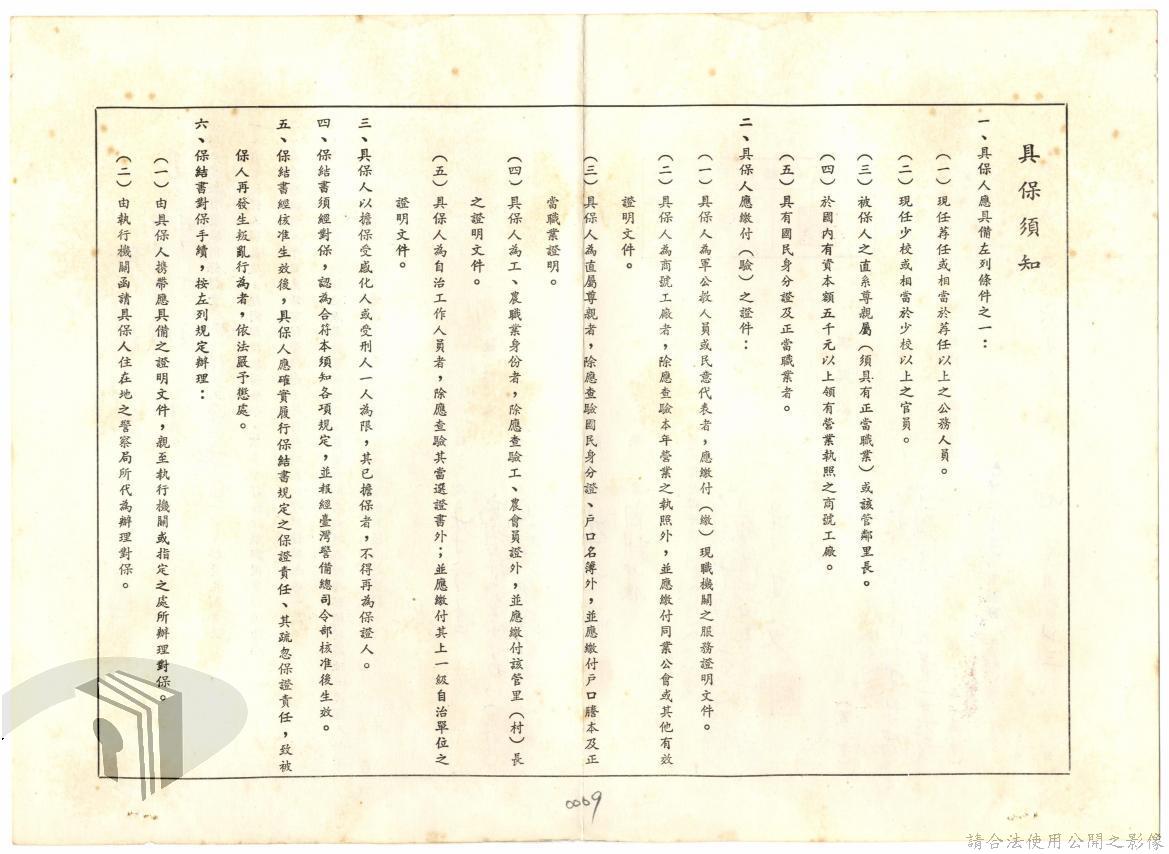 具保須知
一、具保人應具備左列條件之一：
（一）現任荐任或相當於荐任以上之公務人員。
（二）現任少校或相當於少校以上之官員。
（三）被保人之直系尊親屬（須具有正當職業）或該管鄰里長。
（四）於國內有資本額五千元以上領有營業執照之商號工廠。
（五）具有國民身分證及正當職業者。
二、具保人應繳付（驗）之證件：
（一）具保人為軍公教人員或民意代表者，應繳付（繳）現職機關之服務證明文件。
（二）具保人為商號工廠者，除應查驗本年營業之執照外，並應繳付同業公會或其他有效
證明文件。
（三）具保人為直屬尊親者，除應查驗國民身分證、戶口名簿外，並應繳付戶口謄本及正
當職業證明。
（四）具保人為工、農職業身份者，除應查驗工、農會員證外，並應繳付該管里（村）長
之證明文件。
（五）具保人為自治工作人員者，除應查驗其當選證書外；並應繳付其上一級自治單位之
證明文件。
三、具保人以擔保受感化人或受刑人一人為限，其已擔保者，不得再為保證人。
四、保結書須經對保，認為合符本須知各項規定，並報經臺灣警備總司令部核准後生效。
五、保結書經核准生效後，具保人應確實履行保結書規定之保證責任、其疏忽保證責任，致被
保人再發生叛亂行為者，依法嚴予懲處。
六、保結書對保手續，按左列規定辦理：
（一）由具保人携帶應具備之證明文件，親至執行機關或指定之處所辦理對保。
（二）由執行機關函請具保人住在地之警察局所代為辦理對保。
0009
請合法使用公開之影像